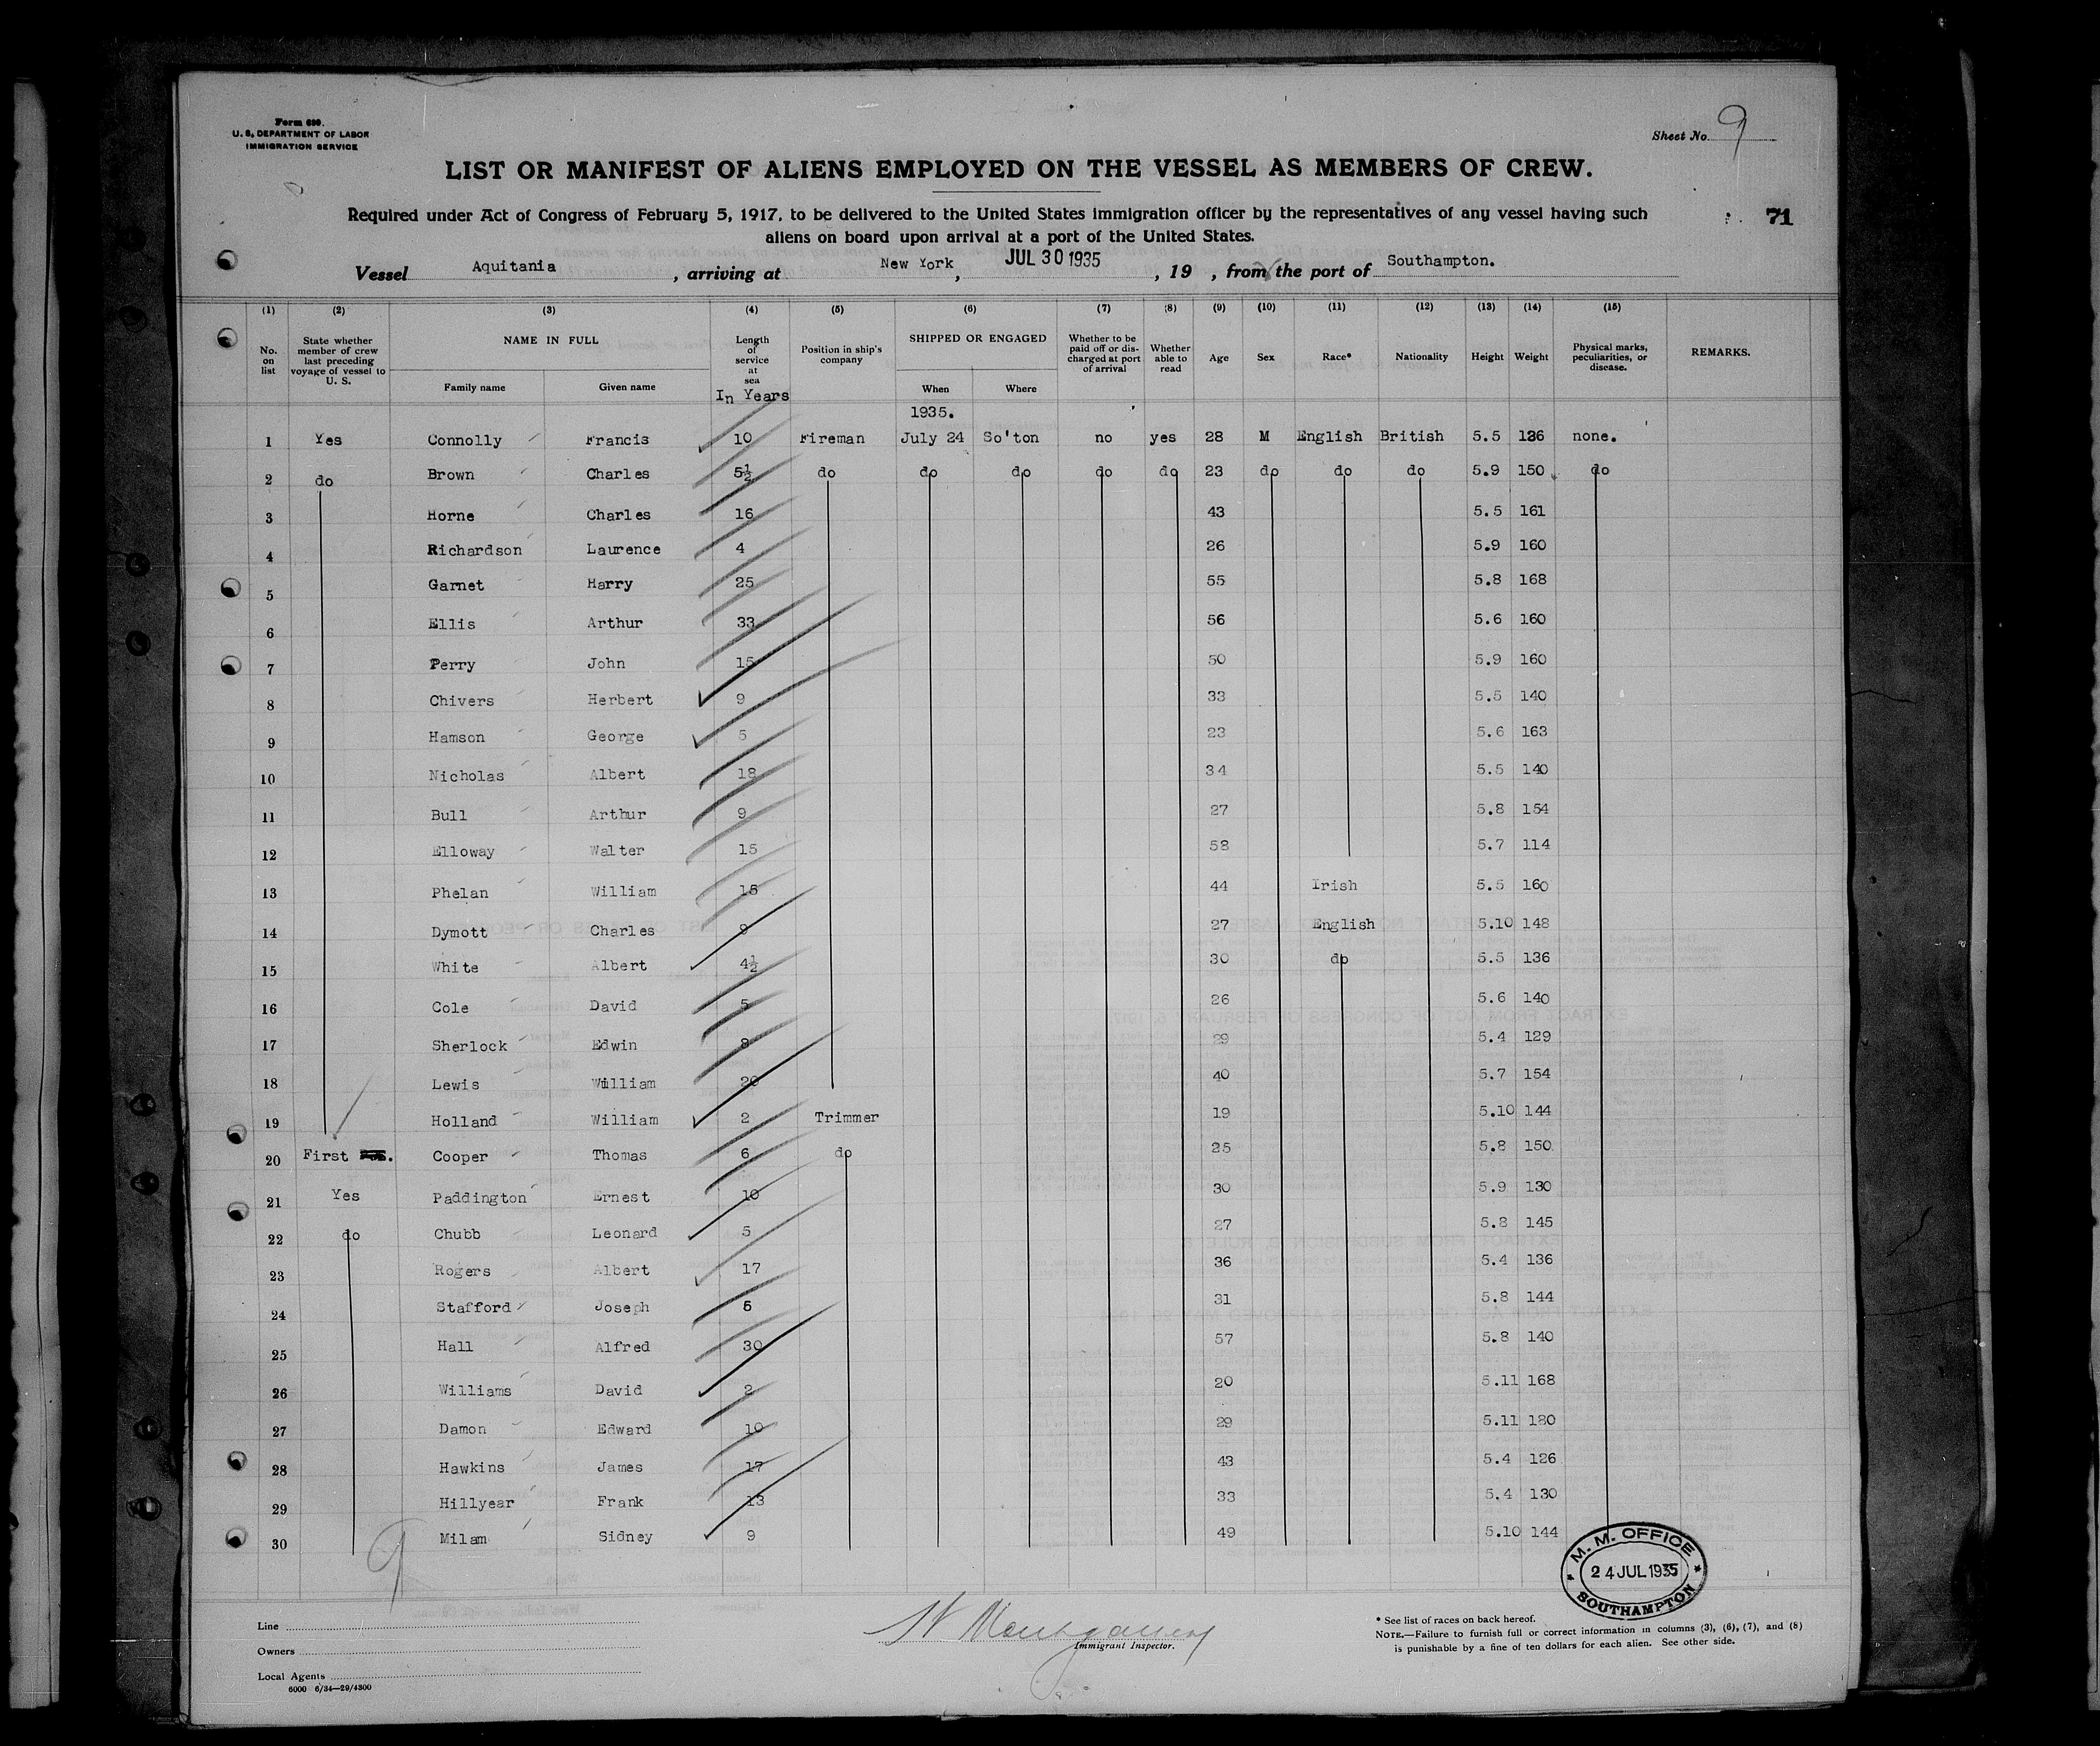 Form 680.
U. S. DEPARTMENT OF LABOR
IMMIGRATION SERVICE
Sheet No. 9
LIST OR MANIFEST OF ALIENS EMPLOYED ON THE VESSEL AS MEMBERS OF CREW.
Required under Act of Congress of February 5, 1917, to be delivered to the United States immigration officer by the representatives of any vessel having such
aliens on board upon arrival at a port of the United States.
71
Vessel Aquitania, arriving at New York, JUL 30 1935, 19 , from the port of Southampton.
(1) (2) (3) (4) (5) (6) (7) (8) (9) (10) (11) (12) (13) (14) (15)
No. on list State whether member of crew last preceding voyage of vessel to U. S. NAME IN FULL Family name Given name Length of service at sea In Years Position in ship's company SHIPPED OR ENGAGED When Where Whether to be paid off or discharged at port of arrival Whether able to read Age Sex Race* Nationality Height Weight Physical marks, peculiarities, or disease. REMARKS.
1935.
1 Yes Connolly Francis 10 Fireman July 24 So'ton no yes 28 M English British 5.5 136 none.
2 do Brown Charles 5½ do do do do do 23 do do do 5.9 150 do
3 Horne Charles 16 43 5.5 161
4 Richardson Laurence 4 26 5.9 160
5 Garnet Harry 25 55 5.8 168
6 Ellis Arthur 33 56 5.6 160
7 Perry John 15 50 5.9 160
8 Chivers Herbert 9 33 5.5 140
9 Hamson George 5 23 5.6 163
10 Nicholas Albert 18 34 5.5 140
11 Bull Arthur 9 27 5.8 154
12 Elloway Walter 15 58 5.7 114
13 Phelan William 15 44 Irish 5.5 160
14 Dymott Charles 9 27 English 5.10 148
15 White Albert 4½ 30 do 5.5 136
16 Cole David 5 26 5.6 140
17 Sherlock Edwin 8 29 5.4 129
18 Lewis William 20 40 5.7 154
19 Holland William 2 Trimmer 19 5.10 144
20 First Cooper Thomas 6 do 25 5.8 150
21 Yes Paddington Ernest 10 30 5.9 130
22 do Chubb Leonard 5 27 5.8 145
23 Rogers Albert 17 36 5.4 136
24 Stafford Joseph 6 31 5.8 144
25 Hall Alfred 30 57 5.8 140
26 Williams David 2 20 5.11 168
27 Damon Edward 10 29 5.11 180
28 Hawkins James 17 43 5.4 126
29 Hillyear Frank 13 33 5.4 130
30 Milam Sidney 9 49 5.10 144
9
M. M. OFFICE
24 JUL 1935
SOUTHAMPTON
Line
Owners
Local Agents
6000 6/34—29/4300
Montgomery
Immigrant Inspector.
* See list of races on back hereof.
NOTE.—Failure to furnish full or correct information in columns (3), (6), (7), and (8)
is punishable by a fine of ten dollars for each alien. See other side.